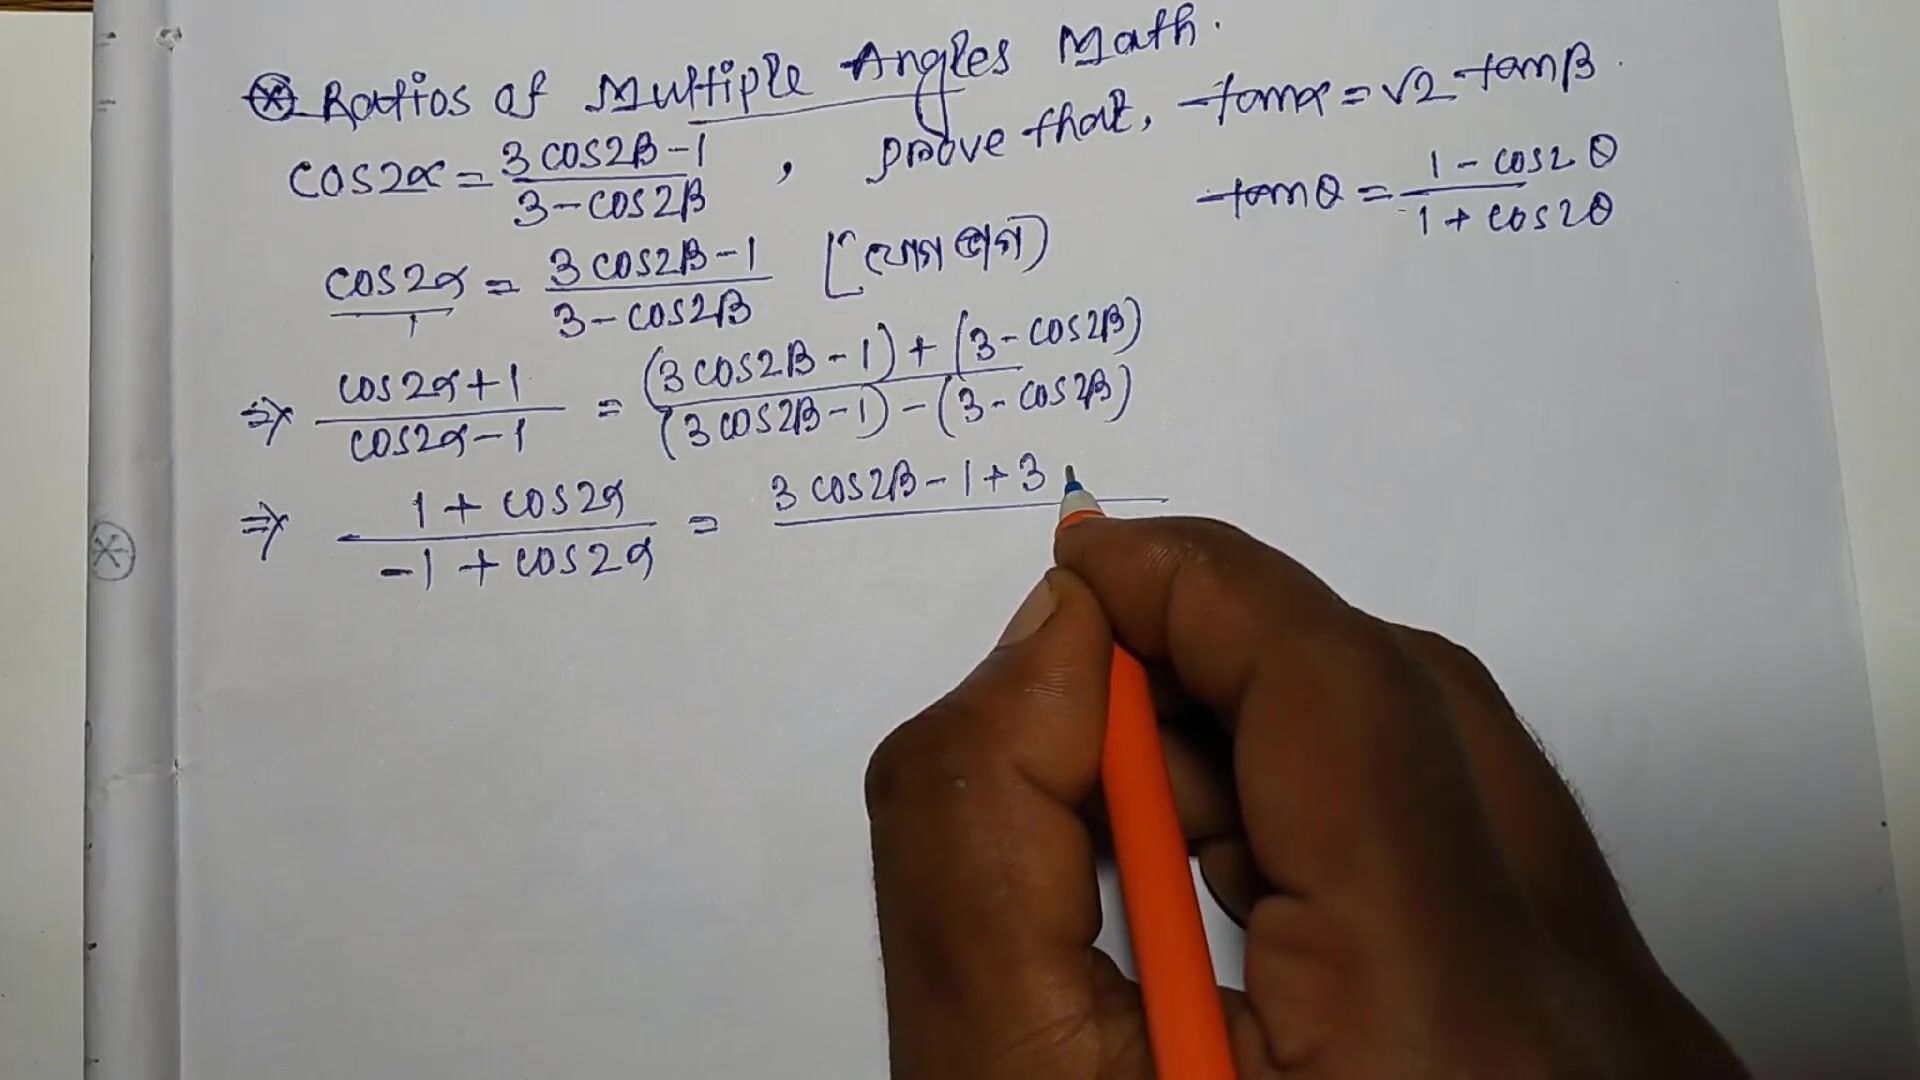 ⊛ Ratios of Multiple Angles Math.
cos2α = (3cos2β-1)/(3-cos2β) , prove that, tanα = √2 tanβ.
tanθ = (1-cos2θ)/(1+cos2θ)
cos2α/1 = (3cos2β-1)/(3-cos2β)
⇒ (cos2α+1)/(cos2α-1) = ((3cos2β-1)+(3-cos2β))/((3cos2β-1)-(3-cos2β))
⇒ (1+cos2α)/(-1+cos2α) = 3cos2β-1+3